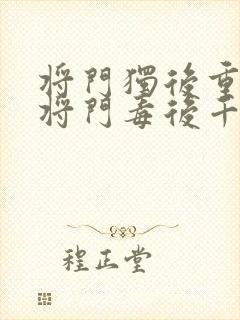 將門獨後重
將門毒後千
程正堂